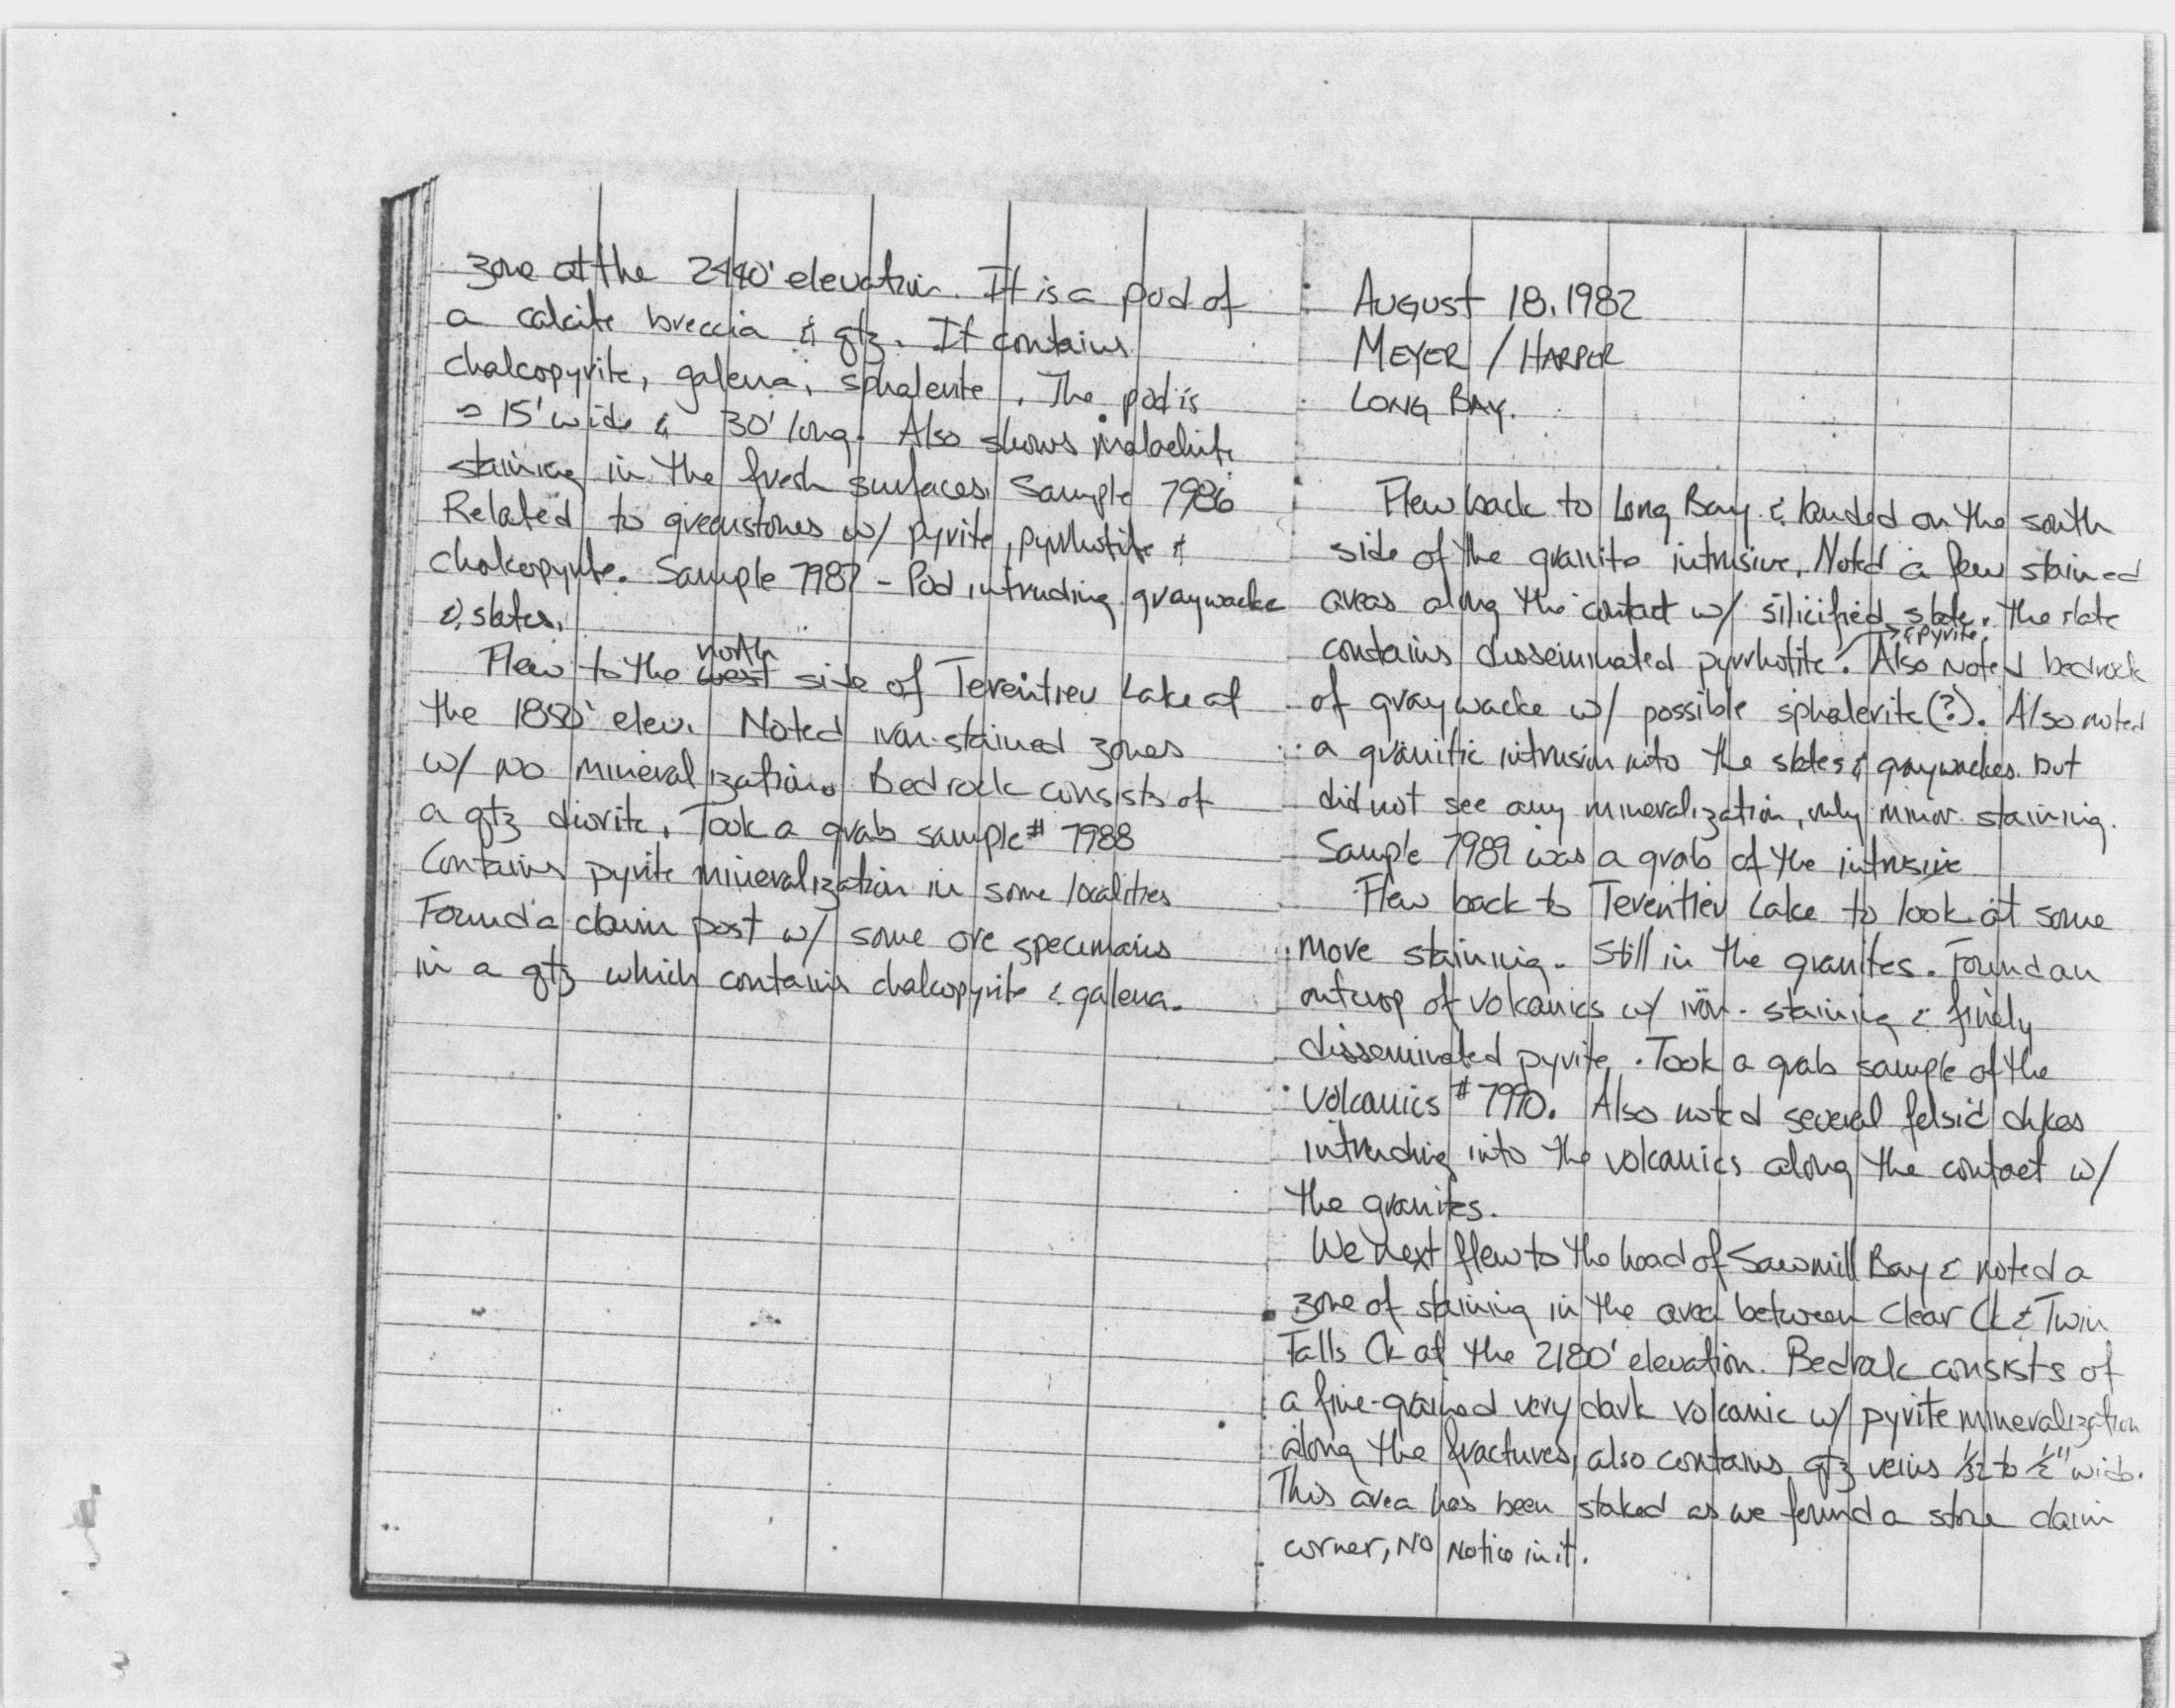 zone at the 2440' elevation. It is a pod of
a calcite breccia & qtz. It contains
chalcopyrite, galena, sphalerite. The pod is
≈ 15' wide & 30' long. Also shows malachite
staining in the fresh surfaces. Sample 7986
Related to greenstones w/ pyrite, pyrrhotite &
chalcopyrite. Sample 7987 - Pod intruding graywacke
& slates.
north
Flew to the west side of Terentiev Lake at
the 1850' elev. Noted iron-stained zones
w/ no mineralization. Bedrock consists of
a qtz diorite. Took a grab sample # 7988
Contains pyrite mineralization in some localities
Found a claim post w/ some ore specimens
in a qtz which contains chalcopyrite & galena.
August 18, 1982
Meyer / Harper
Long Bay.
Flew back to Long Bay & landed on the south
side of the granite intrusive. Noted a few stained
areas along the contact w/ silicified slate. The slate
& pyrite
contains disseminated pyrrhotite. Also noted bedrock
of graywacke w/ possible sphalerite (?). Also noted
a granitic intrusion into the slates & graywackes but
did not see any mineralization, only minor staining.
Sample 7989 was a grab of the intrusive
Flew back to Terentiev Lake to look at some
more staining. Still in the granites. Found an
outcrop of volcanics w/ iron-staining & finely
disseminated pyrite. Took a grab sample of the
volcanics # 7990. Also noted several felsic dykes
intruding into the volcanics along the contact w/
the granites.
We next flew to the head of Sawmill Bay & noted a
zone of staining in the area between Clear Ck & Twin
Falls Ck at the 2180' elevation. Bedrock consists of
a fine-grained very dark volcanic w/ pyrite mineralization
along the fractures, also contains qtz veins 1/32 to 1/2" wide.
This area has been staked as we found a stone claim
corner, No Notice in it.